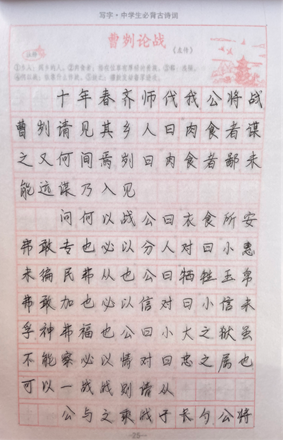 写字·中学生必背古诗词
曹刿论战
(左传)
十年春齐师伐我公将战
曹刿请见其乡人曰肉食者谋
之又何间焉刿曰肉食者鄙未
能远谋乃入见
问何以战公曰衣食所安
弗敢专也必以分人对曰小惠
未徧民弗从也公曰牺牲玉帛
弗敢加也必以信对曰小信未
孚神弗福也公曰小大之狱虽
不能察必以情对曰忠之属也
可以一战战则请从
公与之乘战于长勺公将